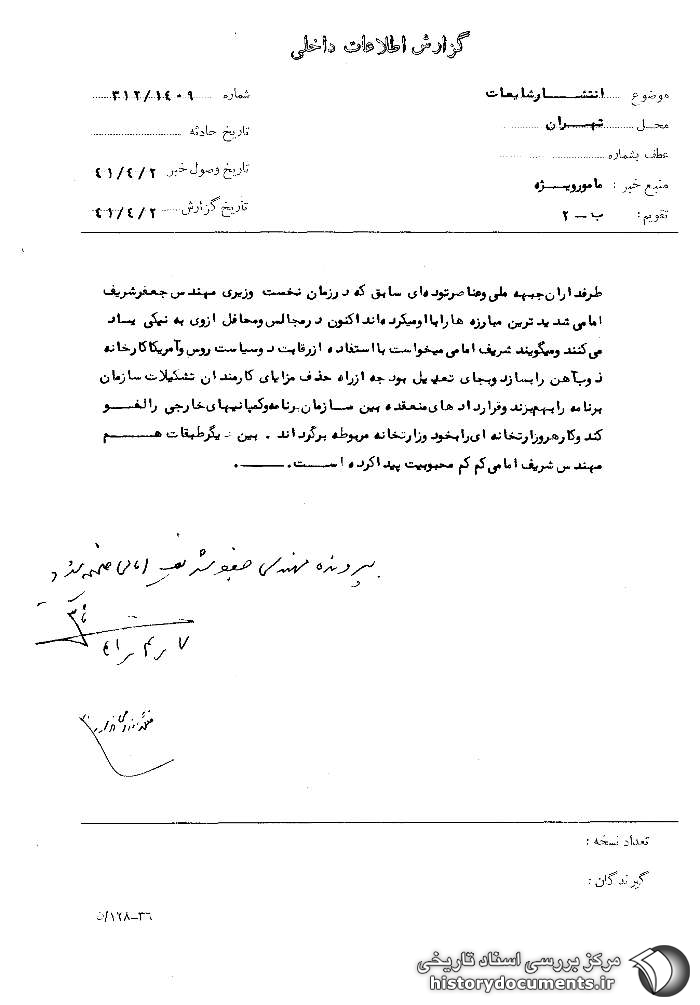 گزارش اطلاعات داخلی
موضوع انتشار شایعات
شماره ۳۱۲/۱۴۰۹
محل تهران
تاریخ حادثه
عطف بشماره
تاریخ وصول خبر ۴۱/۴/۲
منبع خبر : مامور ویژه
تاریخ گزارش ۴۱/۴/۲
تقویم : ب - ۲
طرفداران جبهه ملی وعناصر توده ای سابق که در زمان نخست وزیری مهندس جعفر شریف
امامی شدید ترین مبارزه هارا با اومیکرده اند اکنون در مجالس ومحافل از وی به نیکی یاد
می کنند ومیگویند شریف امامی میخواست با استفاده از رقابت دوسیاست روس وآمریکا کارخانه
ذوب آهن را بسازد وبجای تعدیل بودجه از راه حذف مزایای کارمندان تشکیلات سازمان
برنامه را بهم بزند وقرارداد های منعقده بین سازمان برنامه وکمپانیهای خارجی را لغو
کند وکار هر وزارتخانه ای را بخود وزارتخانه مربوطه برگرداند . بین دیگر طبقات هم
مهندس شریف امامی کم کم محبوبیت پیدا کرده است .
بپرونده مهندس جعفر شریف امامی ضمیمه شود
۷ ر ۴ ر ۴۱
تعداد نسخه :
گیرندگان :
۳۶-۱۲۸/ن
مرکز بررسی اسناد تاریخی
historydocuments.ir